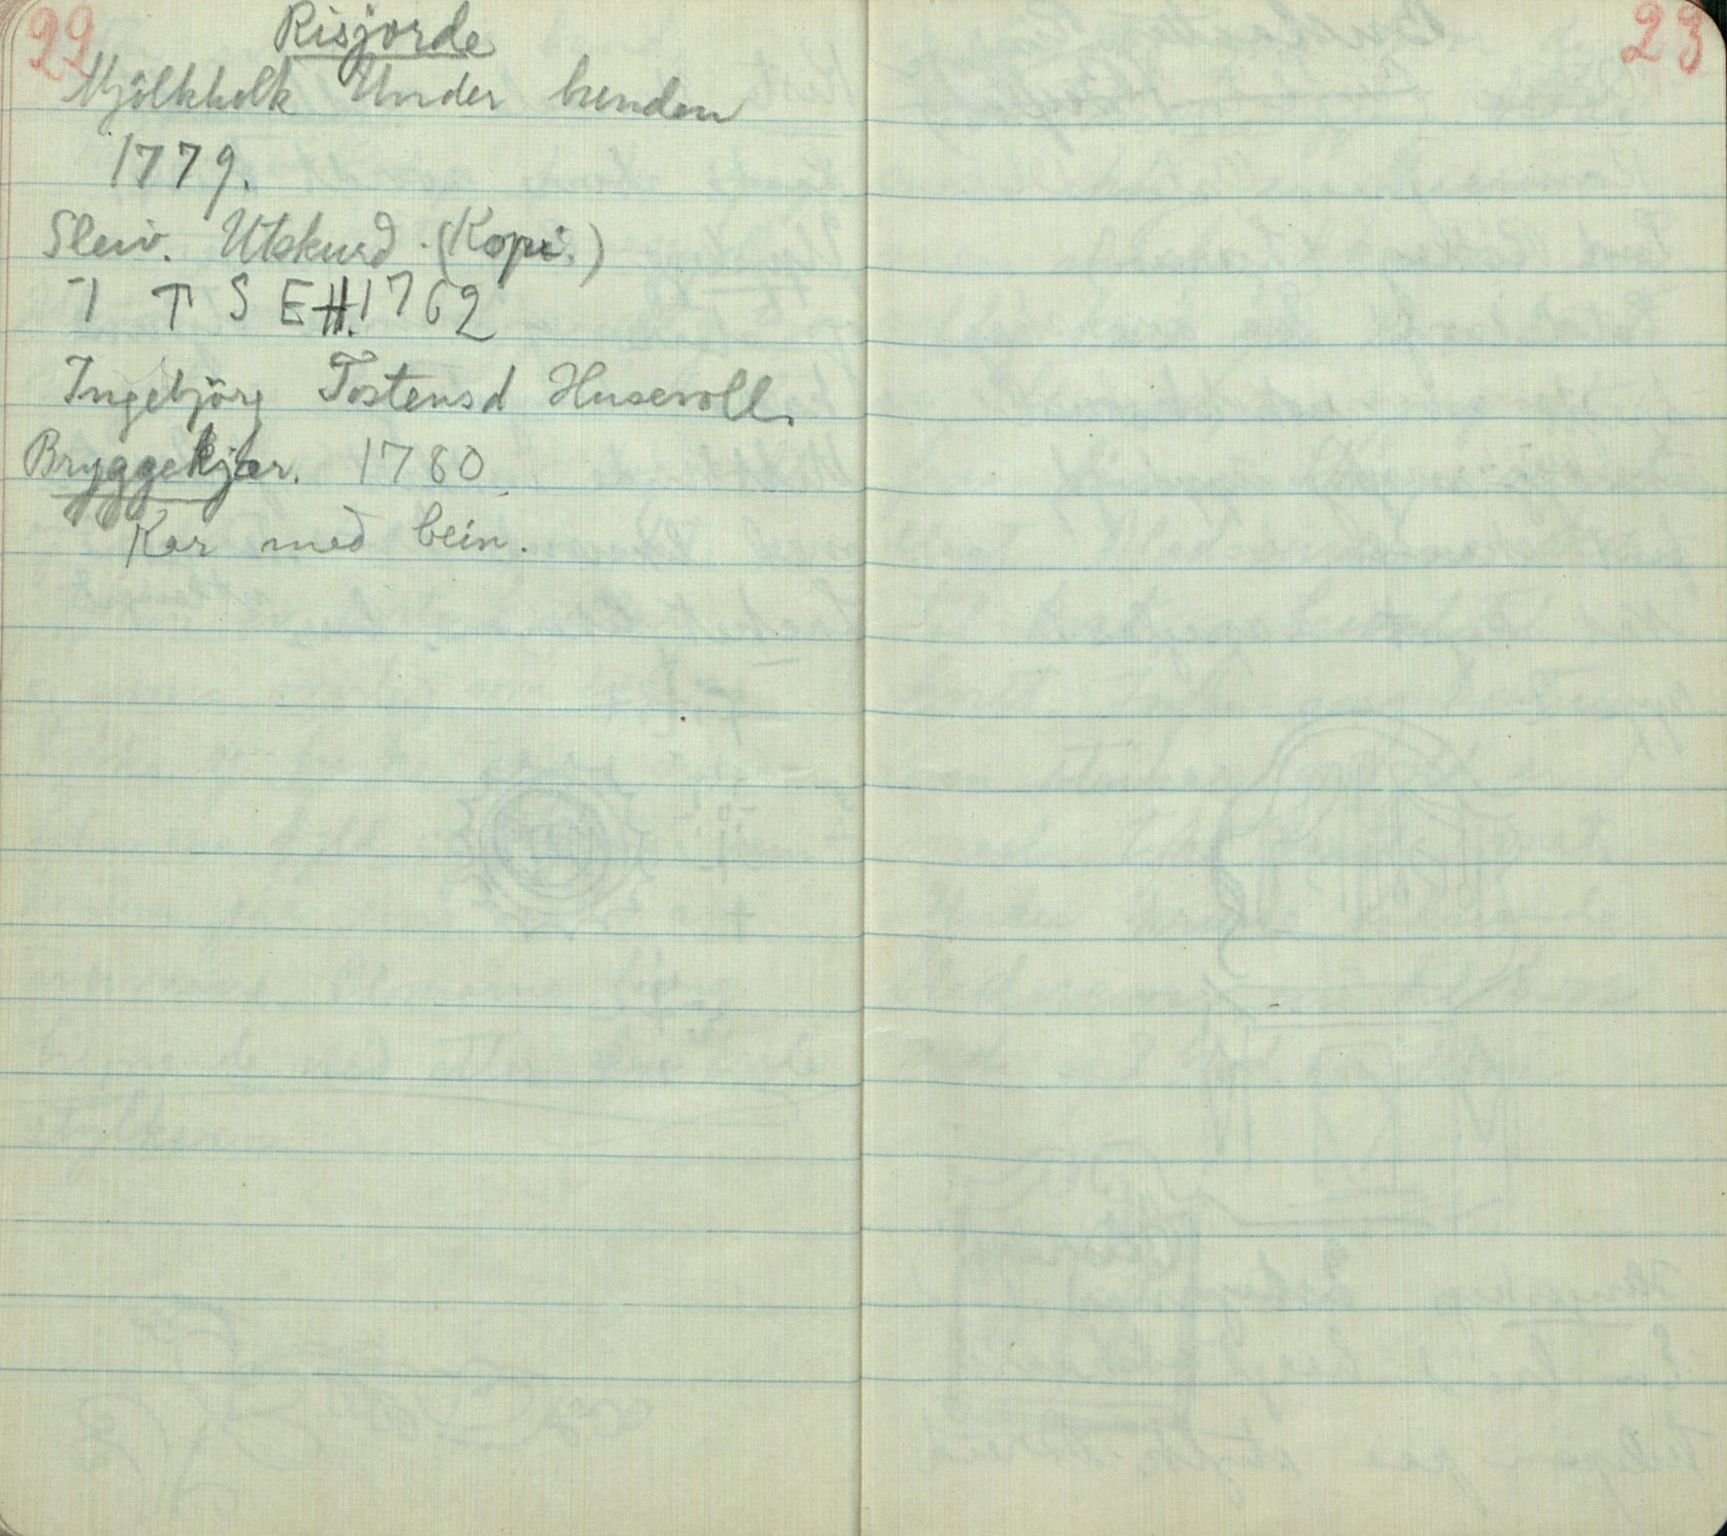 22
Risjorde
Mjölkholk Under henden
1779.
Sleiv. Utskurd. (Kopi.)
I T S E H. 1762
Ingebjörg Tostensd Husevoll.
Bryggekjer. 1780
Kar med bein.
23